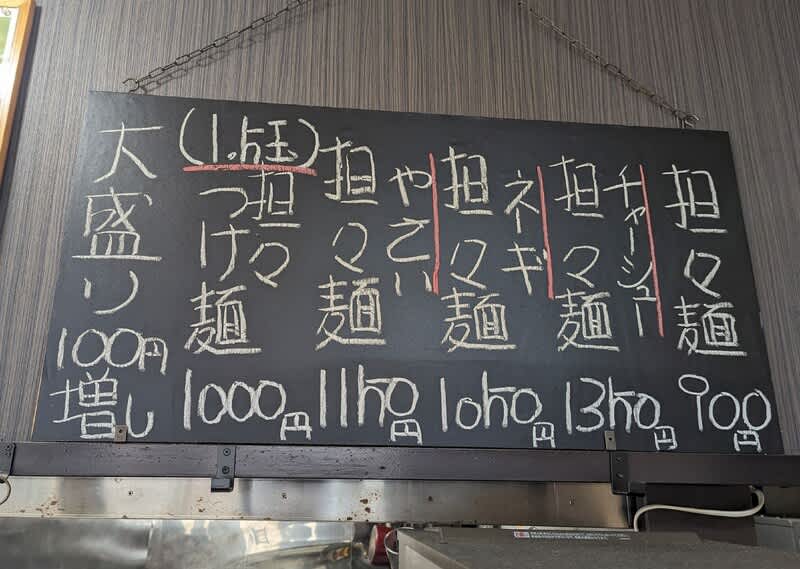 担々麺
900円
チャーシュー
担々麺
1350円
ネーギ
担々麺
1050円
やさい
担々麺
1150円
(1.5玉)
担々
つけ麺
1000円
大盛り
100円
増し